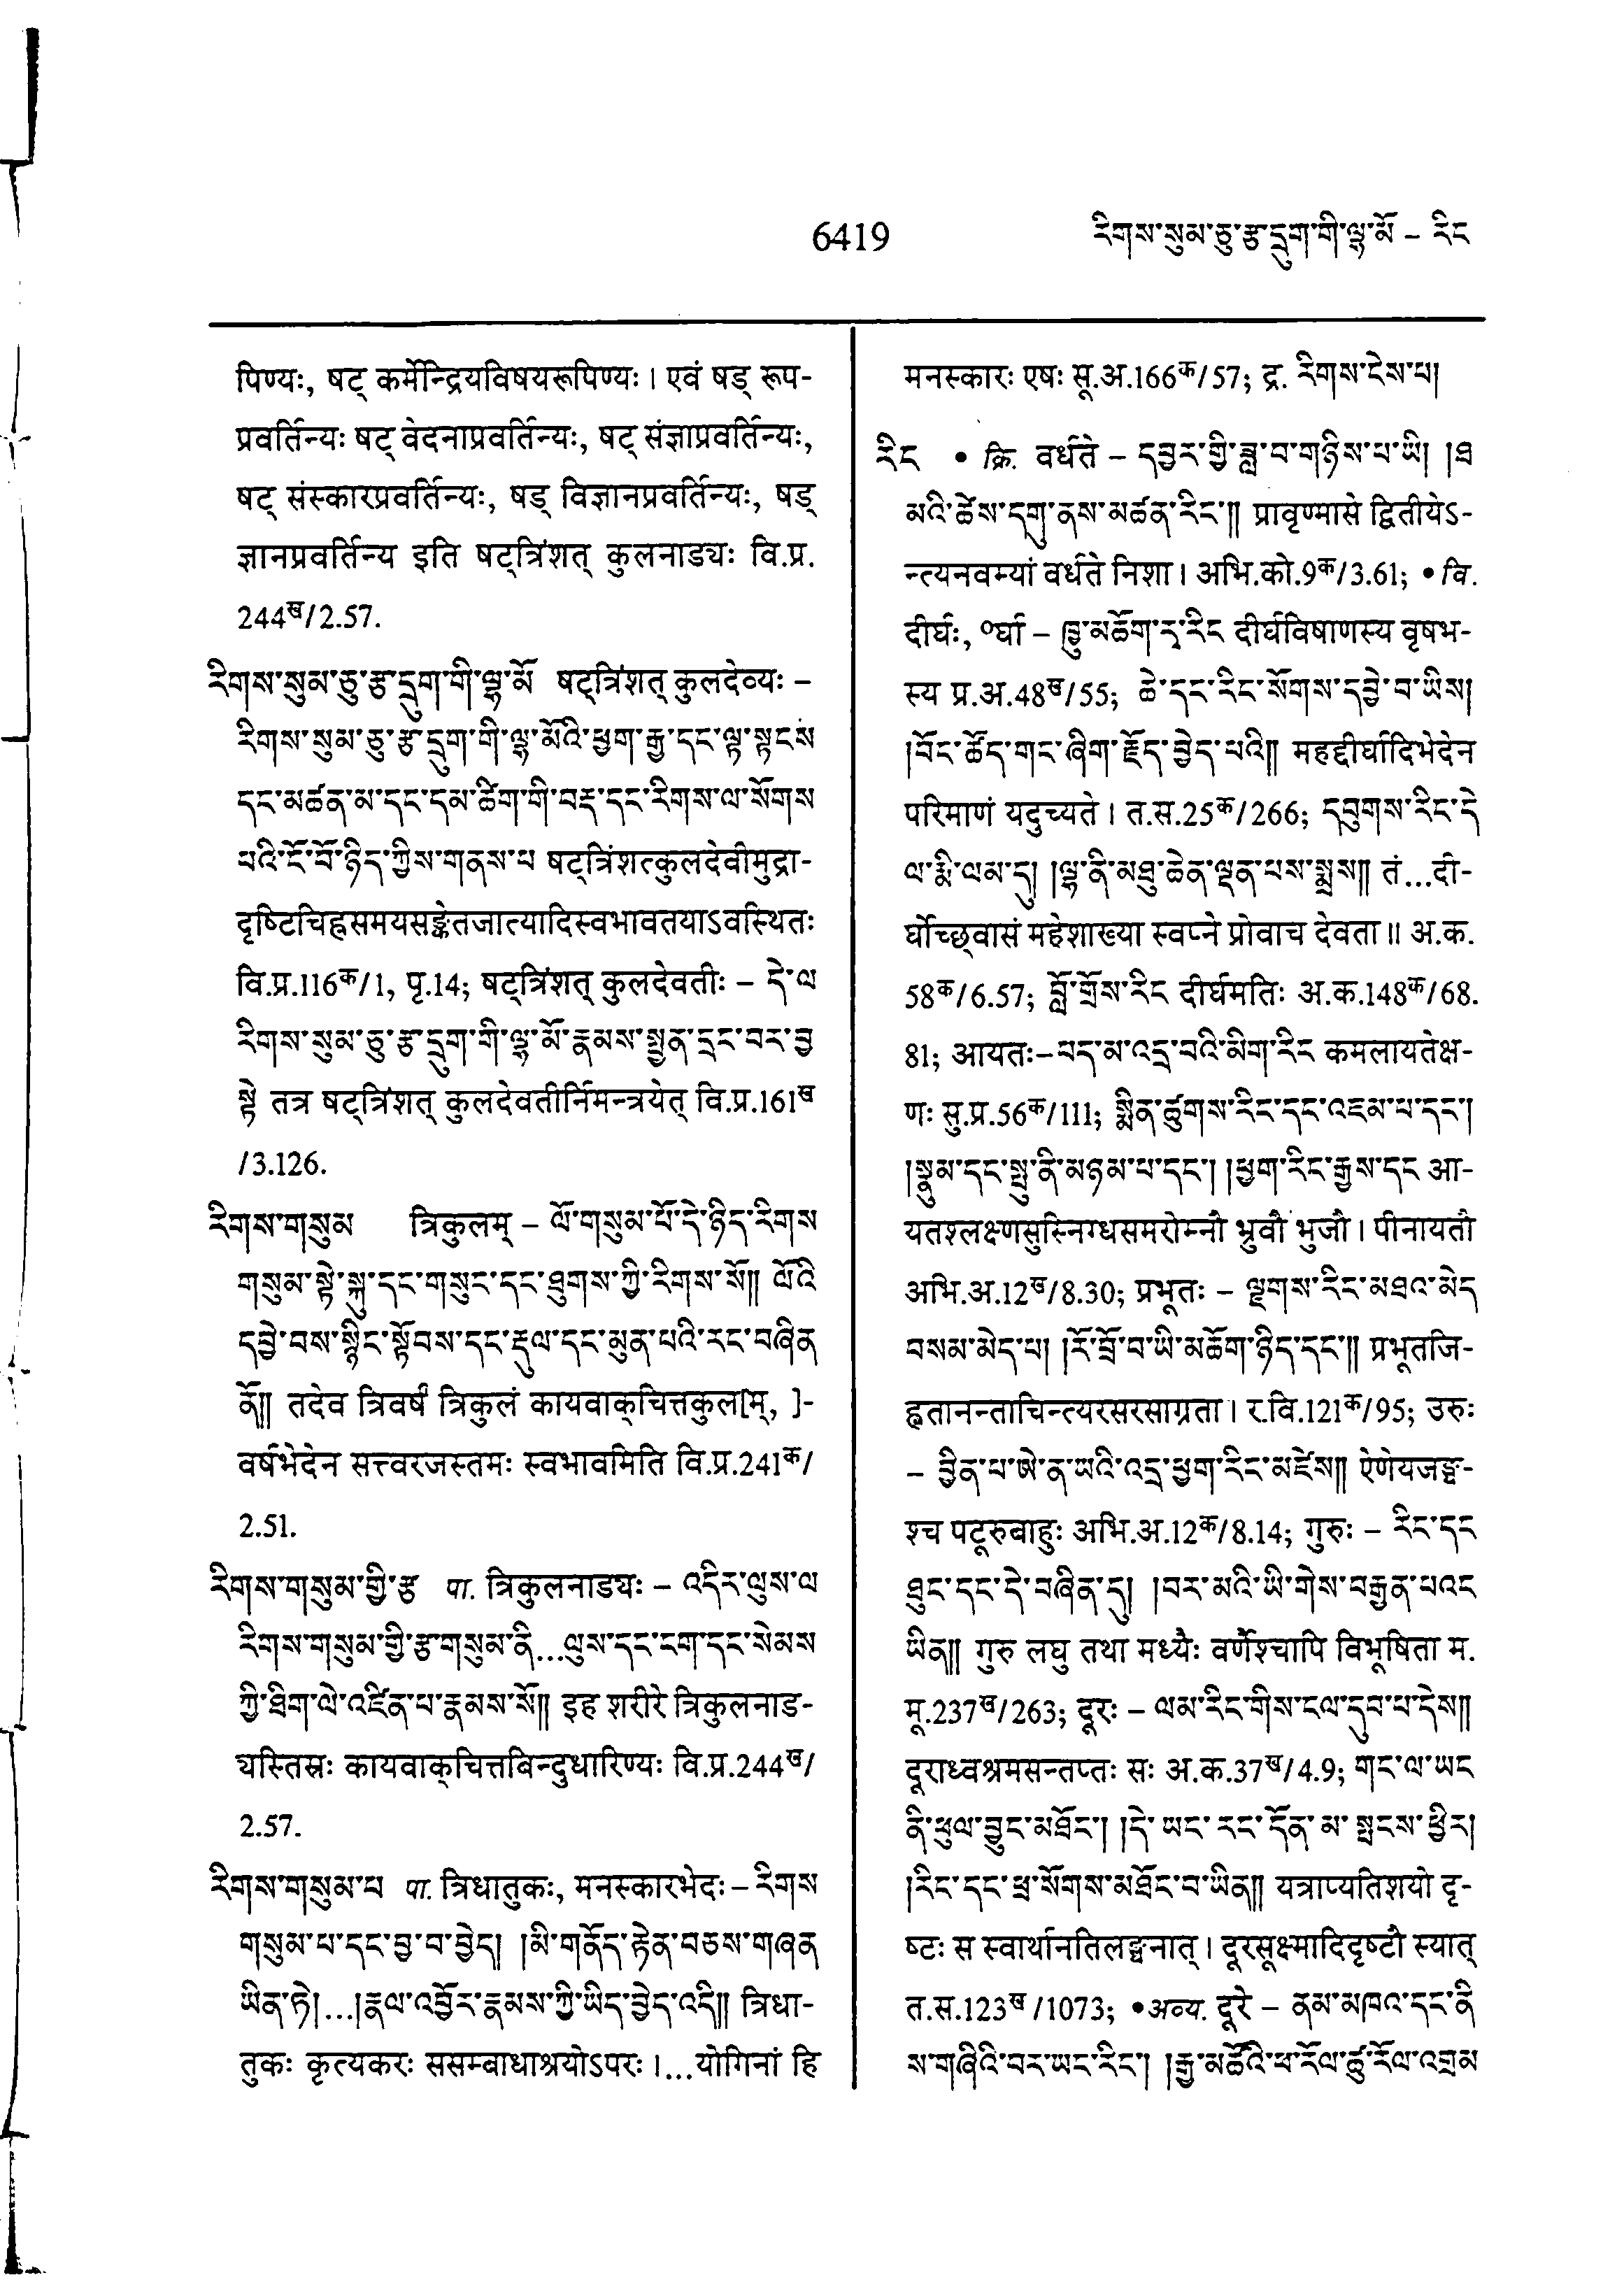 6419
རིགས་སུམ་ཅུ་རྩ་དྲུག་གི་ལྷ་མོ – རིང
पिण्यः, षट् कर्मेन्द्रियविषयरूपिण्यः । एवं षड् रूप-
प्रवर्तिन्यः षट् वेदनाप्रवर्तिन्यः, षट् संज्ञाप्रवर्तिन्यः,
षट् संस्कारप्रवर्तिन्यः, षड् विज्ञानप्रवर्तिन्यः, षड्
ज्ञानप्रवर्तिन्य इति षट्त्रिंशत् कुलनाड्यः वि.प्र.
244ख/2.57.
རིགས་སུམ་ཅུ་རྩ་དྲུག་གི་ལྷ་མོ षट्त्रिंशत् कुलदेव्यः –
རིགས་སུམ་ཅུ་རྩ་དྲུག་གི་ལྷ་མོའི་ཕྱག་རྒྱ་དང་ལྟ་སྟངས
དང་མཚན་མ་དང་དམ་ཚིག་གི་བརྡ་དང་རིགས་ལ་སོགས
པའི་ངོ་བོ་ཉིད་ཀྱིས་གནས་པ षट्त्रिंशत्कुलदेवीमुद्रा-
दृष्टिचिह्नसमयसङ्केतजात्यादिस्वभावतयाऽवस्थितः
वि.प्र.116क/1, पृ.14; षट्त्रिंशत् कुलदेवतीः – དེ་ལ
རིགས་སུམ་ཅུ་རྩ་དྲུག་གི་ལྷ་མོ་རྣམས་སྤྱན་དྲང་བར་བྱ
སྟེ तत्र षट्त्रिंशत् कुलदेवतीर्निमन्त्रयेत् वि.प्र.161ख
/3.126.
རིགས་གསུམ त्रिकुलम् – ལོ་གསུམ་པོ་དེ་ཉིད་རིགས
གསུམ་སྟེ་སྐུ་དང་གསུང་དང་ཐུགས་ཀྱི་རིགས་སོ༎ ལོའི
དབྱེ་བས་སྙིང་སྟོབས་དང་རྡུལ་དང་མུན་པའི་རང་བཞིན
ནོ༎ तदेव त्रिवर्षं त्रिकुलं कायवाक्चित्तकुल[म्, ]-
वर्षभेदेन सत्त्वरजस्तमः स्वभावमिति वि.प्र.241क/
2.51.
རིགས་གསུམ་གྱི་རྩ पा. त्रिकुलनाड्यः – འདིར་ལུས་ལ
རིགས་གསུམ་གྱི་རྩ་གསུམ་ནི...ལུས་དང་ངག་དང་སེམས
ཀྱི་ཐིག་ལེ་འཛིན་པ་རྣམས་སོ༎ इह शरीरे त्रिकुलनाड-
यस्तिस्रः कायवाक्चित्तबिन्दुधारिण्यः वि.प्र.244ख/
2.57.
རིགས་གསུམ་པ पा. त्रिधातुकः, मनस्कारभेदः – རིགས
གསུམ་པ་དང་བྱ་བ་བྱེད། །མི་གནོད་རྟེན་བཅས་གཞན
ཡིན་ཏེ།...།རྣལ་འབྱོར་རྣམས་ཀྱི་ཡིད་བྱེད་འདི༎ त्रिधा-
तुकः कृत्यकरः ससम्बाधाश्रयोऽपरः ।...योगिनां हि
मनस्कारः एषः सू.अ.166क/57; द्र. རིགས་ངེས་པ།
རིང • क्रि. वर्धते – དབྱར་གྱི་ཟླ་བ་གཉིས་པ་ཡི། །ཐ
མའི་ཚེས་དགུ་ནས་མཚན་རིང་༎ प्रावृण्मासे द्वितीयेऽ-
न्त्यनवम्यां वर्धते निशा । अभि.को.9क/3.61; • वि.
दीर्घः, ०र्घा – ཁྱུ་མཆོག་རྭ་རིང दीर्घविषाणस्य वृषभ-
स्य प्र.अ.48ख/55; ཆེ་དང་རིང་སོགས་དབྱེ་བ་ཡིས།
།བོང་ཚོད་གང་ཞིག་རྗོད་བྱེད་པའི༎ महद्दीर्घादिभेदेन
परिमाणं यदुच्यते । त.स.25क/266; དབུགས་རིང་དེ
ལ་རྨི་ལམ་དུ། །ལྷ་ནི་མཐུ་ཆེན་ལྡན་པས་སྨྲས༎ तं...दी-
र्घोच्छ्वासं महेशाख्या स्वप्ने प्रोवाच देवता ॥ अ.क.
58क/6.57; བློ་གྲོས་རིང दीर्घमतिः अ.क.148क/68.
81; आयतः–པད་མ་འདྲ་བའི་མིག་རིང कमलायतेक्ष-
णः सु.प्र.56क/111; སྨིན་ཚུགས་རིང་དང་འཇམ་པ་དང་།
།སྣུམ་དང་སྤུ་ནི་མཉམ་པ་དང་། །ཕྱག་རིང་རྒྱས་དང आ-
यतश्लक्ष्णसुस्निग्धसमरोम्नौ भ्रुवौ भुजौ । पीनायतौ
अभि.अ.12ख/8.30; प्रभूतः – ལྗགས་རིང་མཐའ་མེད
བསམ་མེད་པ། །རོ་བྲོ་བ་ཡི་མཆོག་ཉིད་དང་༎ प्रभूतजि-
ह्वतानन्ताचिन्त्यरसरसाग्रता । र.वि.121क/95; उरुः
– བྱིན་པ་ཨེ་ན་ཡའི་འདྲ་ཕྱག་རིང་མཛེས༎ ऐणेयजङ्घ-
श्च पटूरुबाहुः अभि.अ.12क/8.14; गुरुः – རིང་དང
ཐུང་དང་དེ་བཞིན་དུ། །བར་མའི་ཡི་གེས་བརྒྱན་པའང
ཡིན༎ गुरु लघु तथा मध्यैः वर्णैश्चापि विभूषिता म.
मू.237ख/263; दूरः – ལམ་རིང་གིས་ངལ་དུབ་པ་དེས༎
दूराध्वश्रमसन्तप्तः सः अ.क.37ख/4.9; གང་ལ་ཡང
ནི་ཕུལ་བྱུང་མཐོང་། །དེ་ཡང་རང་དོན་མ་སྤངས་ཕྱིར།
།རིང་དང་ཕྲ་སོགས་མཐོང་བ་ཡིན༎ यत्राप्यतिशयो दृ-
ष्टः स स्वार्थानतिलङ्घनात् । दूरसूक्ष्मादिदृष्टौ स्यात्
त.स.123ख/1073; •अव्य. दूरे – ནམ་མཁའ་དང་ནི
ས་གཞིའི་བར་ཡང་རིང་། །རྒྱ་མཚོའི་ཕ་རོལ་ཚུ་རོལ་འགྲམ